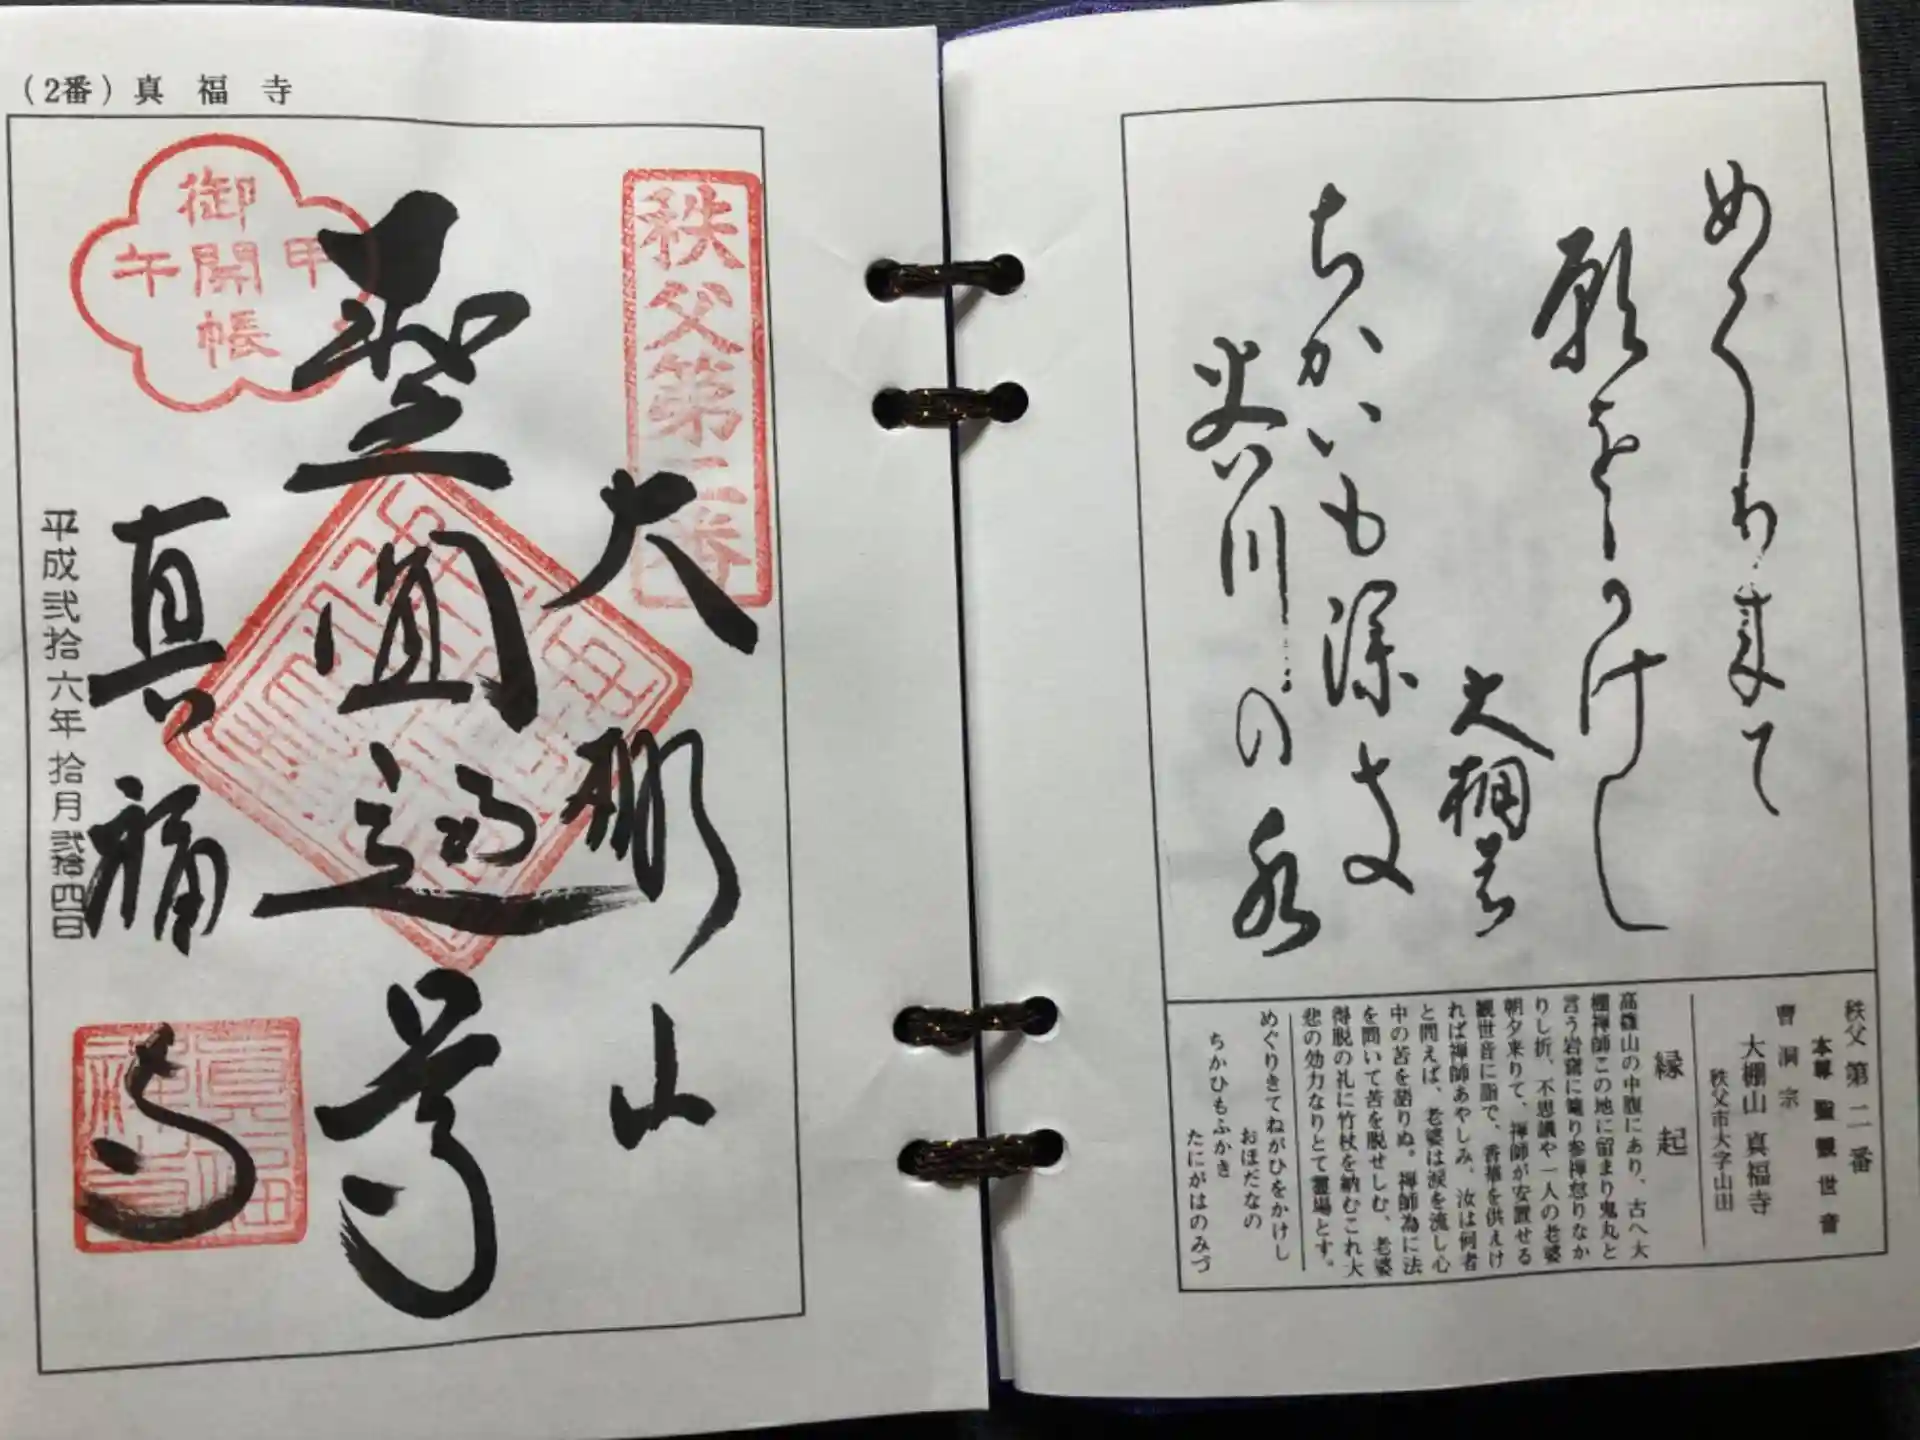 めくり来て
願をかけし
大棚の
ちかいも深き
谷川の水
秩父 第二番
本尊 聖観世音
曹洞宗
大棚山 真福寺
秩父市大字山田
縁起
高篠山の中腹にあり、古へ大
棚禅師この地に留まり鬼丸と
言う岩窟に籠り参禅怠りなか
りし折、不思議や一人の老婆
朝夕来りて、禅師が安置せる
観世音に詣で、香華を供えけ
れば禅師あやしみ、汝は何者
と問えば、老婆は涙を流し心
中の苦を語りぬ。禅師為に法
を問いて苦を脱せしむ、老婆
得脱の礼に竹杖を納むこれ大
悲の効力なりとて霊場とす。
めぐりきてねがひをかけし
おほだなの
ちかひもふかき
たにがはのみづ
(2番) 真福寺
秩父第二番
大棚山
聖
圓通
甲午
御開帳
真福寺
平成弐拾六年拾月弐拾四日